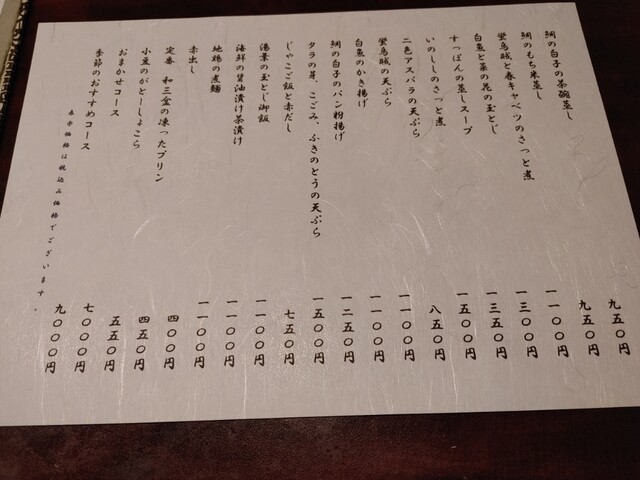 鯛の白子の茶碗蒸し 九五〇円
鯛のもち米蒸し 九五〇円
蛍烏賊と春キャベツのさっと煮 一一〇〇円
白魚と菜の花の玉とじ 一三〇〇円
すっぽんの蒸しスープ 一三五〇円
いのししのさっと煮 一五〇〇円
二色アスパラの天ぷら 八五〇円
蛍烏賊の天ぷら 一一〇〇円
白魚のかき揚げ 一一〇〇円
鯛の白子のパン粉揚げ 一二五〇円
タラの芽、こごみ、ふきのとうの天ぷら 一五〇〇円
じゃこご飯と赤だし 七五〇円
湯葉の玉とじ御飯 一一〇〇円
海鮮の醤油漬け茶漬け 一一〇〇円
地鶏の煮麺 一一〇〇円
赤出し 四〇〇円
定番 和三盆の凍ったプリン 四五〇円
小豆のがとーしょこら 五五〇円
おまかせコース 七〇〇〇円
季節のおすすめコース 九〇〇〇円
表示価格は税込み価格でございます。